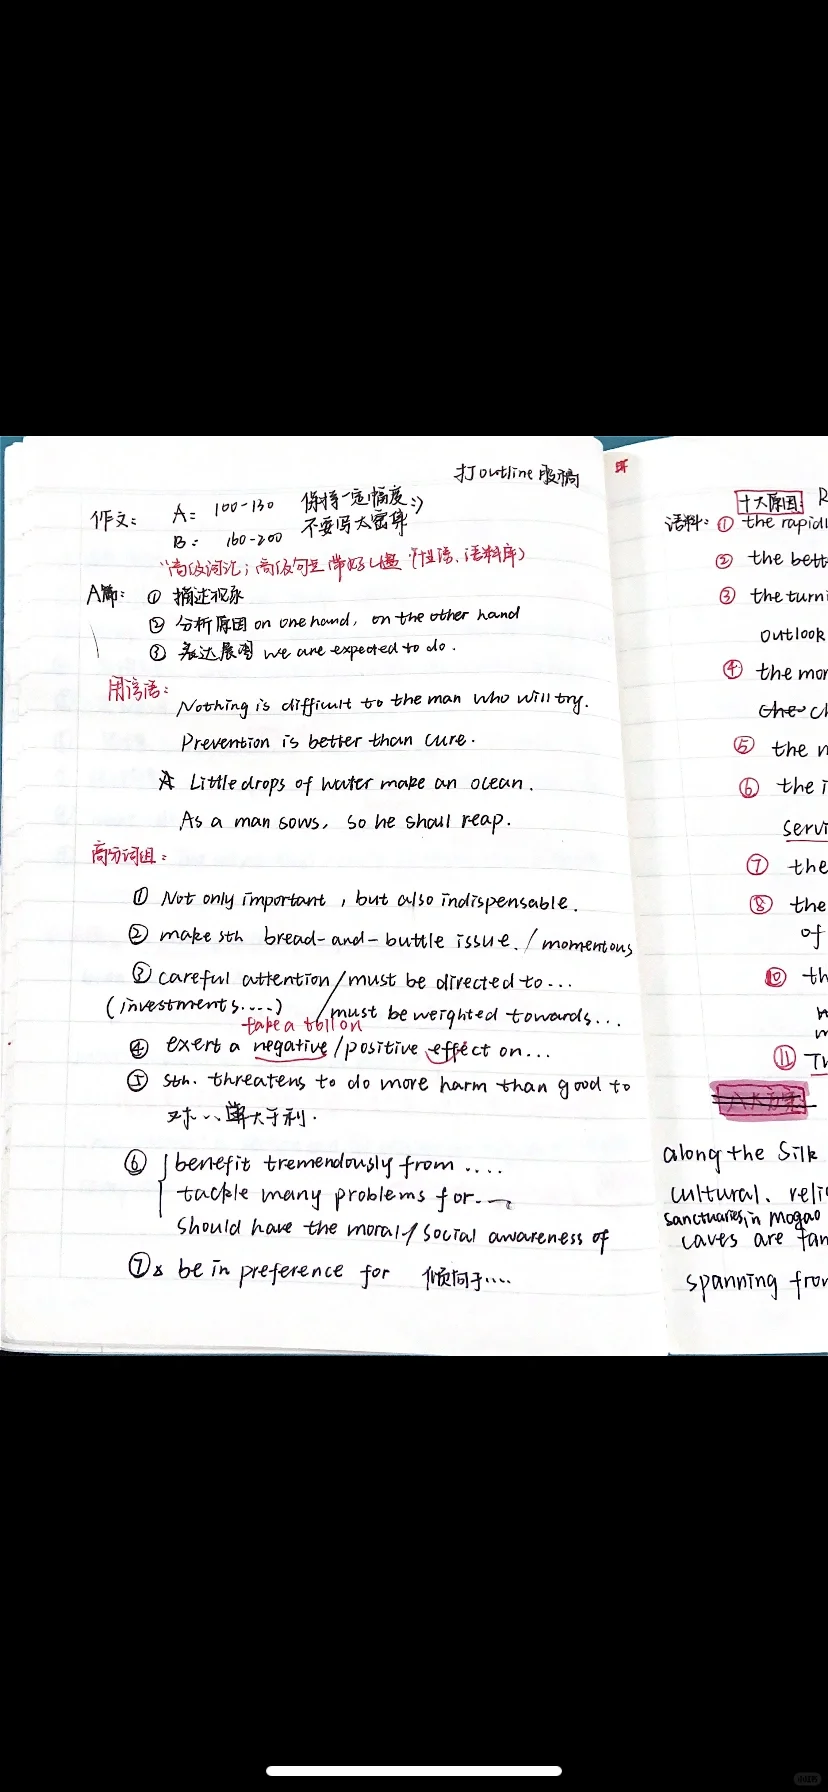 打 outline 服稿
作文： A = 100-130 保持一定幅度
B = 160-200 不要写太密集
高级词汇；高级句
A篇： ① 描述现象
② 分析原因 on one hand, on the other hand
③ 表达展图 we are expected to do.
用谚语：
Nothing is difficult to the man who will try.
Prevention is better than cure.
Little drops of water make an ocean.
As a man sows, so he shall reap.
高分词组：
① Not only important, but also indispensable.
② make sth bread-and-buttle issue. / momentous
③ careful attention / must be directed to...
(investments....) / must be weighted towards...
take a toll on
④ exert a negative / positive effect on...
⑤ sth. threatens to do more harm than good to
对... 大于利.
⑥ benefit tremendously from ....
tackle many problems for...
should have the moral / social awareness of
⑦ be in preference for 倾向于....
十大原因 R
语料：① the rapidl
② the bett
③ the turni
outlook
④ the mor
the ch
⑤ the n
⑥ the i
servi
⑦ the
⑧ the
of
⑩ th
⑪ Th
along the Silk
cultural. reli
sanctuaries in Mogao
caves are fam
spanning from